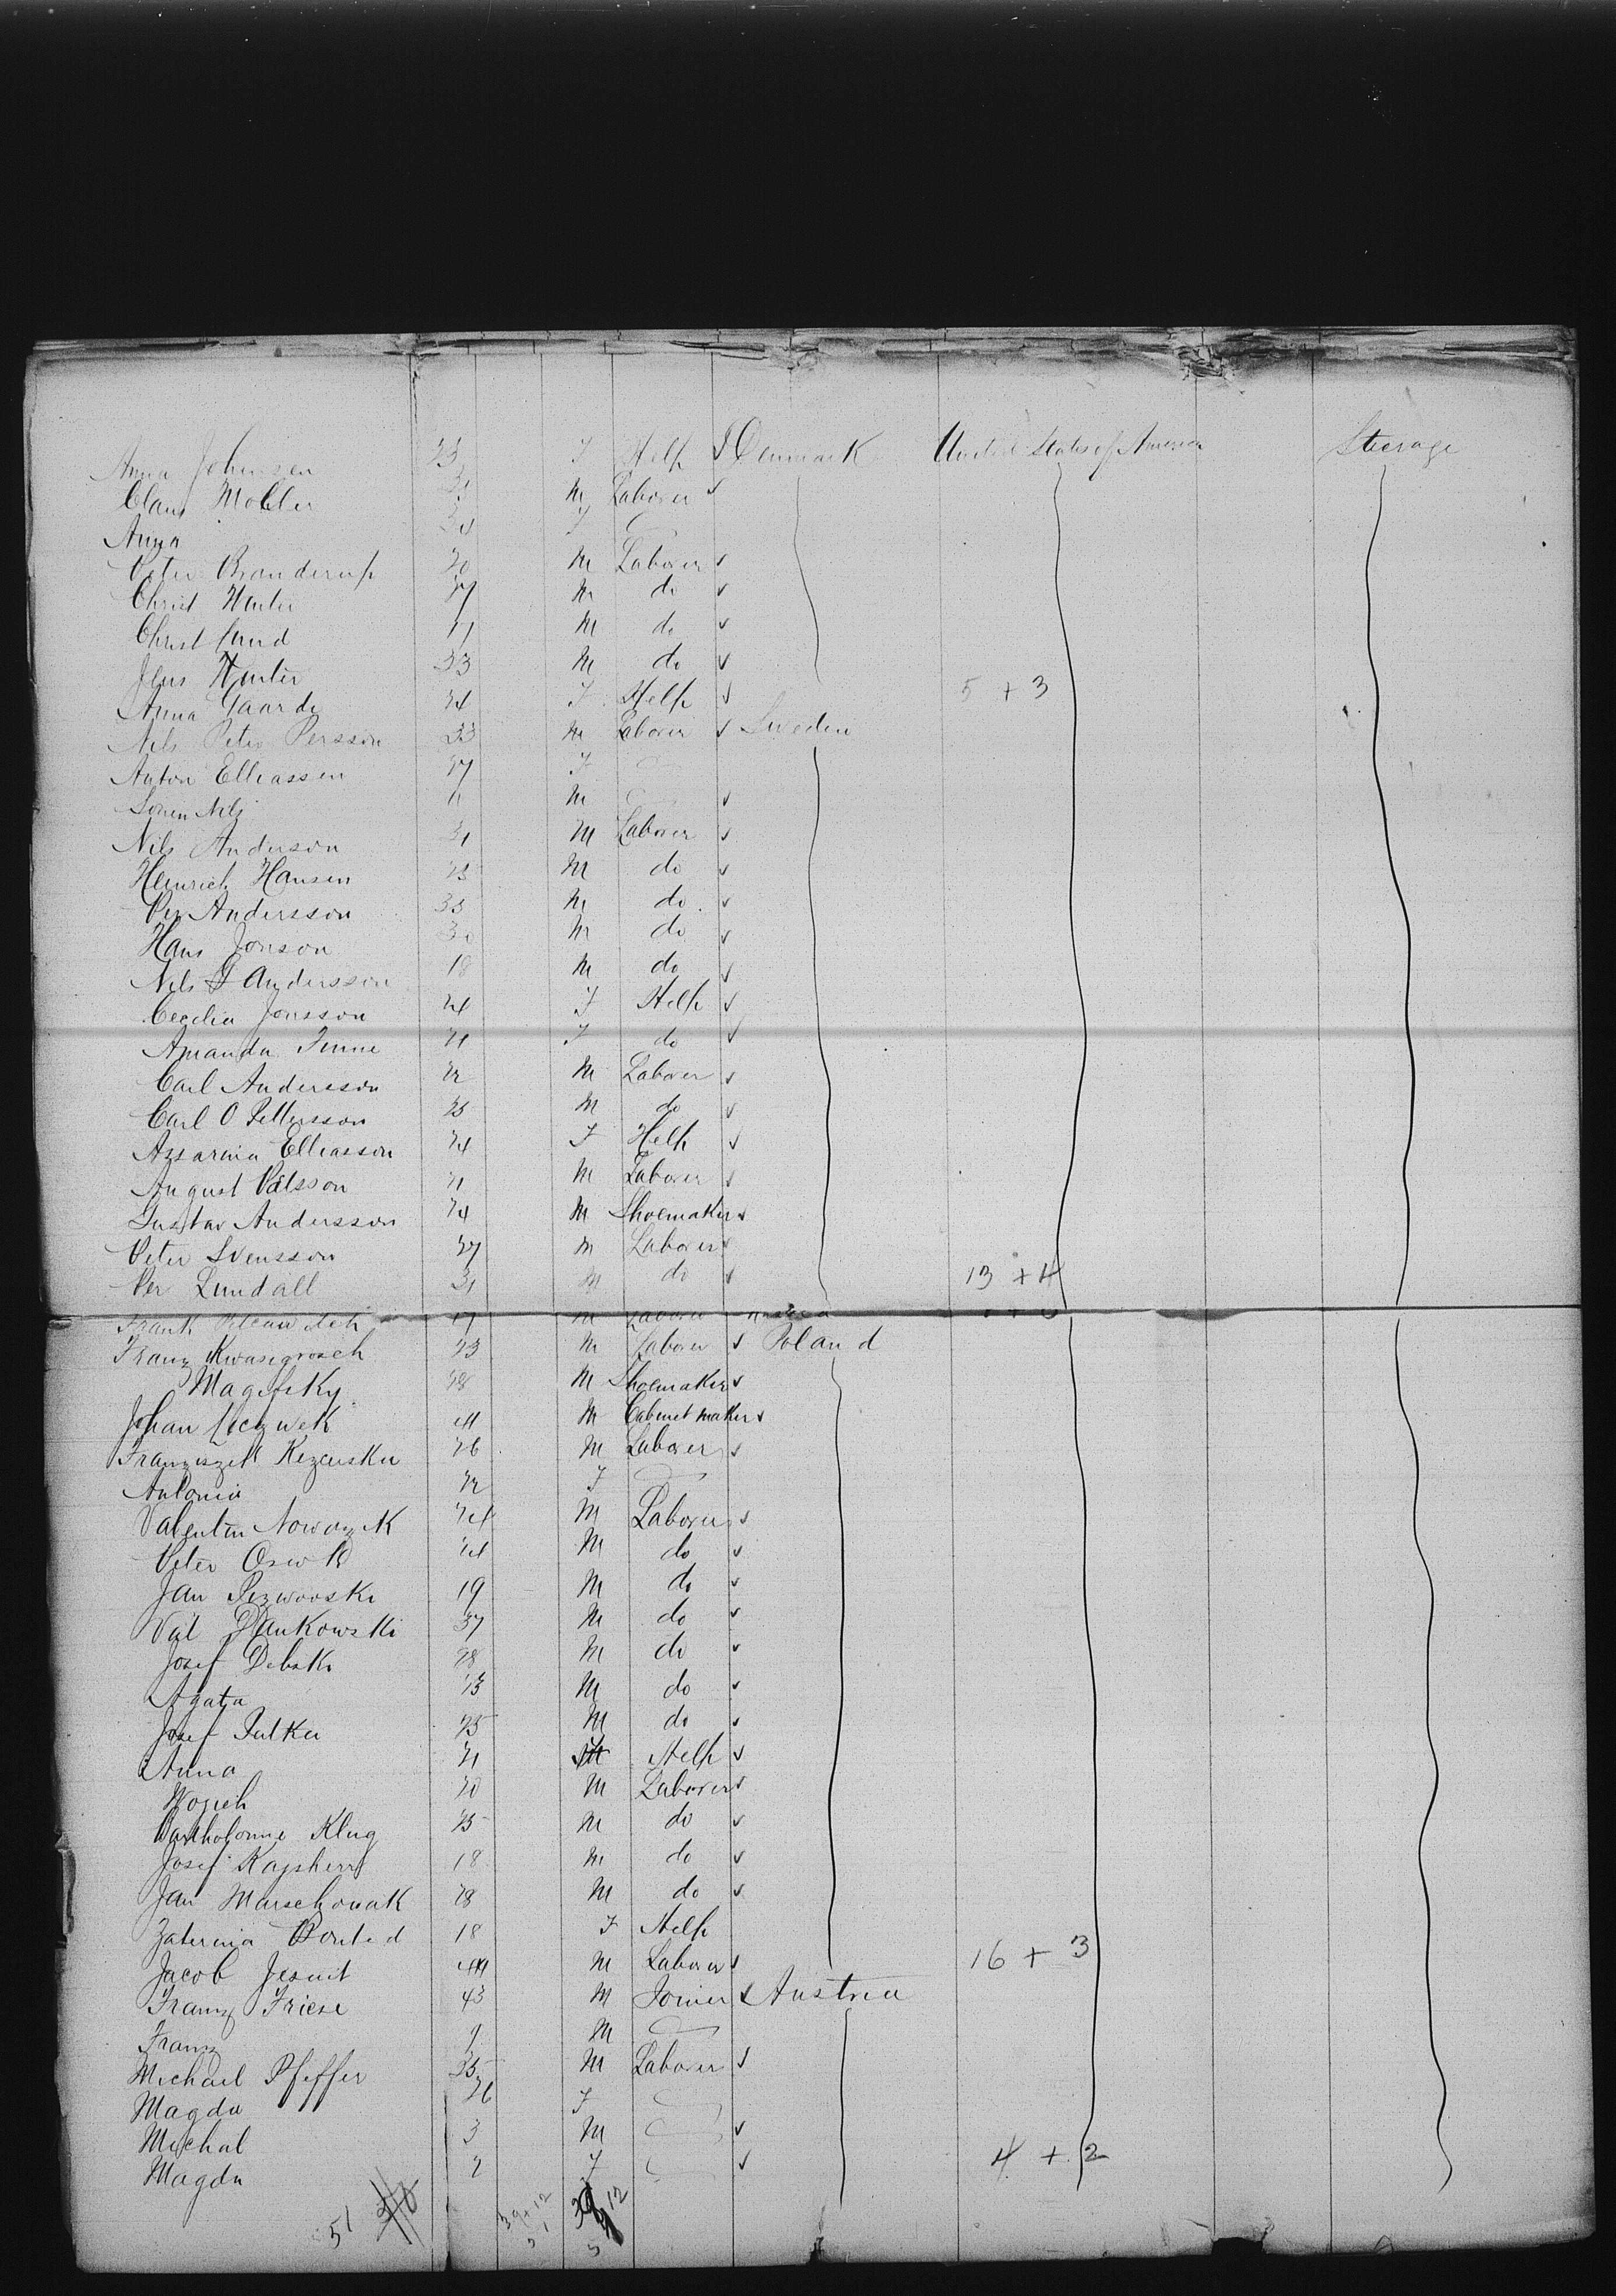 Anna Johensen 23 F Help Denmark United States of America Steerage
Claus Moller 31 M Laborer
Anna 24 F
Peter Branderup 20 M Laborer
Christ Hunter 27 M do
Christ Lund 17 M do
Jens Hunter 33 M do
Anna Gaarde 24 F Help 5 + 3
Nils Peter Persson 33 M Laborer Sweden
Anton Elleassen 27 F
Soren Nils 11 M
Nils Anderson 31 M Laborer
Heinrich Hansen 25 M do
Per Andersson 33 M do
Hans Jonson 30 M do
Nils Andersson 18 M do
Cecilia Jonsson 24 F Help
Amanda 21 F do
Carl Andersson 22 M Laborer
Carl O Pettersson 25 M do
Assarina Elleasson 24 F Help
August Palsson 21 M Laborer
Gustav Andersson 24 M Shoemaker
Peter Svensson 27 M Laborer
Per Lundall 31 M do 13 + 4
Frank M Laborer
Franz Kwasigrosch 23 M Laborer Poland
Magifsky 28 M Shoemaker
Johan 41 M Cabinet maker
Franziszek 26 M Laborer
Antonia 22 F
Valentin Nowazyk 24 M Laborer
Peter 24 M do
Jan 19 M do
Val Dankowski 37 M do
Josef Debski 28 M do
Agata 23 M do
Josef Pulka 25 M do
Anna 21 Help
Wojich 20 M Laborer
Bartholome Klug 25 M do
Josef 18 M do
Jan Marschonak 28 M do
Zaterina 18 F Help
Jacob Jesuit 44 M Laborer 16 + 3
Franz Friese 43 M Joiner Austria
Franz 9 M
Michael Pfeffer 35 M Laborer
Magda 26 F
Michal 3 M
Magda 2 F 4 + 2
51 39+12 39 12
51